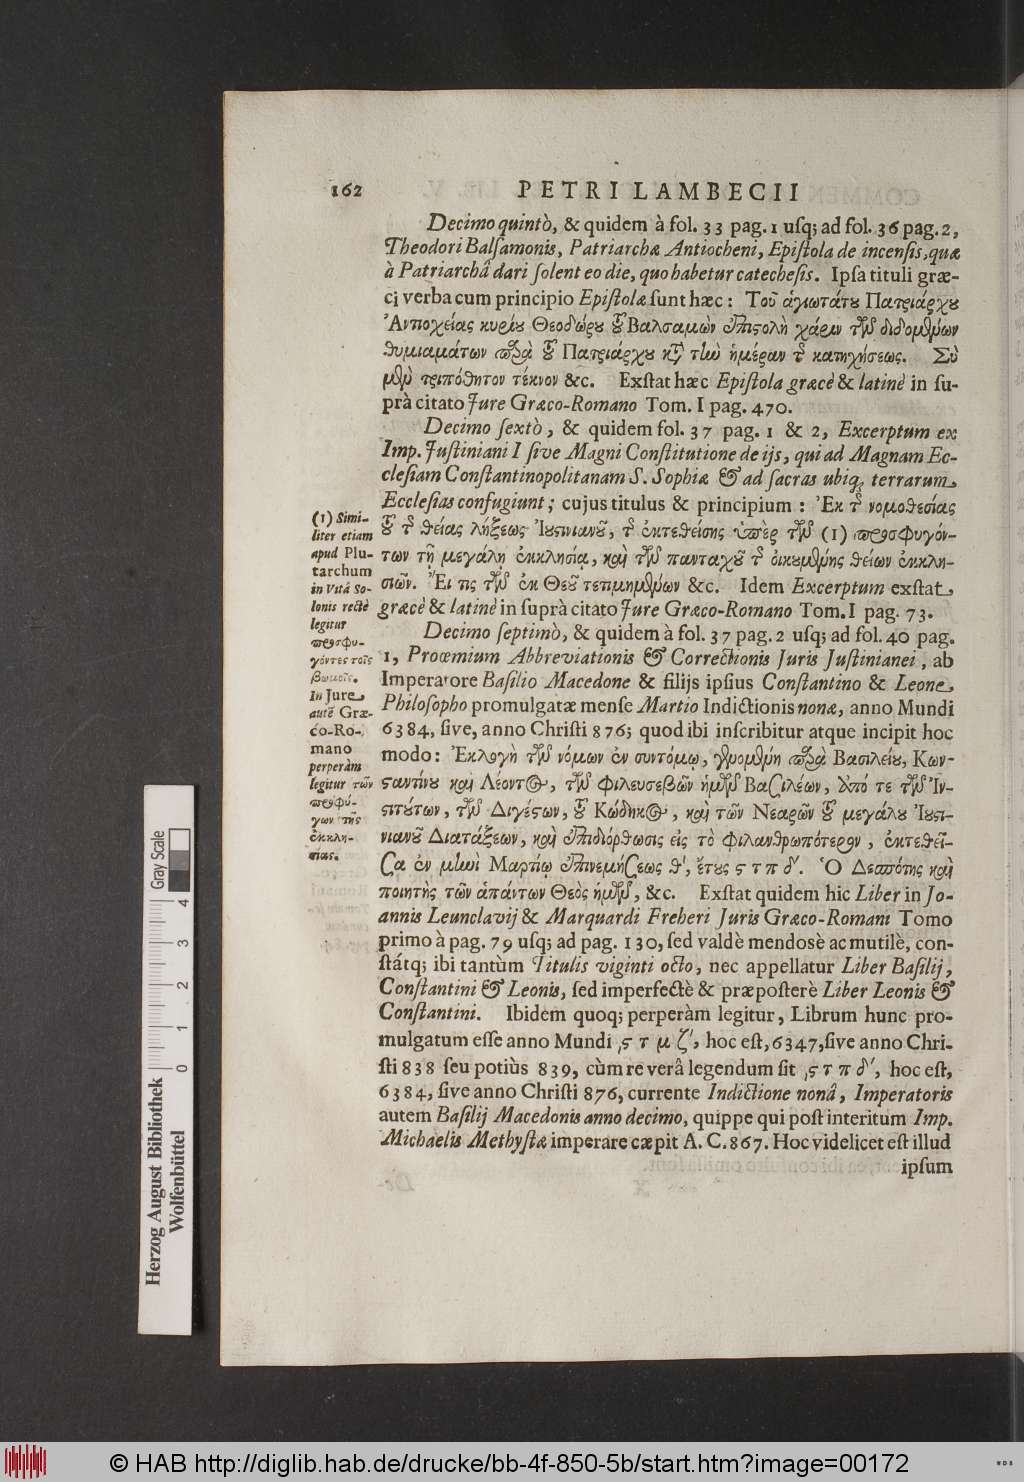 162 PETRI LAMBECII
Decimo quintò, & quidem à fol. 33 pag. 1 uſq; ad fol. 36 pag. 2,
Theodori Balſamonis, Patriarchæ Antiocheni, Epiſtola de incenſis, quæ
à Patriarchâ dari ſolent eo die, quo habetur catecheſis. Ipſa tituli græ-
ci verba cum principio Epiſtolæ ſunt hæc : Τοῦ ἁγιωτάτȣ Πατριάρχȣ
Ἀντιοχείας κυρίȣ Θεοδώρȣ τȣ͂ Βαλσαμὼν ἐπιςολὴ χάριν τῶν διδομένων
θυμιαμάτων παρὰ τȣ͂ Πατριάρχȣ κατὰ τὴν ἡμέραν τῆς κατηχήσεως. Σὺ
μὲν τριπόθητον τέκνον &c. Exſtat hæc Epiſtola græcè & latinè in ſu-
prà citato Jure Græco-Romano Tom. I pag. 470.
Decimo ſextò, & quidem fol. 37 pag. 1 & 2, Excerptum ex
Imp. Juſtiniani I ſive Magni Conſtitutione de ijs, qui ad Magnam Ec-
cleſiam Conſtantinopolitanam S. Sophiæ & ad ſacras ubiq; terrarum
Eccleſias confugiunt; cujus titulus & principium : Ἐκ τῆς νομοθεσίας
τȣ͂ τῆς θείας λήξεως Ἰȣςινιανȣ͂, τῆς ἐκτεθείσης ὑπὲρ τῶν (1) προσφυγόν-
των τῇ μεγάλῃ ἐκκλησίᾳ, καὶ τῶν πανταχȣ͂ τῆς οἰκȣμένης θείων ἐκκλη-
σιῶν. Ἔι τις τῶν ἐκ Θεȣ͂ τετιμημένων &c. Idem Excerptum exſtat
græcè & latinè in ſuprà citato Jure Græco-Romano Tom. I pag. 73.
(1) Simi-
liter etiam
apud Plu-
tarchum
in Vitâ So-
lonis rectè
legitur
προσφυ-
γόντες τοῖς
βωμοῖς.
In Jure
autẽ Græ-
co-Ro-
mano
perperàm
legitur τῶν
προσφύ-
γων τῆς
ἐκκλη-
σίας.
Decimo ſeptimò, & quidem à fol. 37 pag. 2 uſq; ad fol. 40 pag.
1, Proœmium Abbreviationis & Correctionis Juris Juſtinianei, ab
Imperatore Baſilio Macedone & filijs ipſius Conſtantino & Leone
Philoſopho promulgatæ menſe Martio Indictionis nonæ, anno Mundi
6384, ſive, anno Chriſti 876; quod ibi inſcribitur atque incipit hoc
modo: Ἐκλογὴ τῶν νόμων ἐν συντόμῳ, γενομένη παρὰ Βασιλείȣ, Κων-
ςαντίνȣ καὶ Λέοντος, τῶν φιλευσεβῶν ἡμῶν Βασιλέων, ἀπό τε τῶν Ἰν-
ςιτȣ́των, τῶν Διγέςων, τȣ͂ Κώδηκος, καὶ τῶν Νεαρῶν τȣ͂ μεγάλȣ Ἰȣςι-
νιανȣ͂ Διατάξεων, καὶ ἐπιδιόρθωσις εἰς τὸ φιλανθρωπότερον, ἐκτεθεῖ-
σα ἐν μηνὶ Μαρτίῳ ἐπινεμήσεως θ', ἔτȣς ς τ π δ'. Ὁ Δεσπότης καὶ
ποιητὴς τῶν ἁπάντων Θεὸς ἡμῶν, &c. Exſtat quidem hic Liber in Jo-
annis Leunclavij & Marquardi Freheri Juris Græco-Romani Tomo
primo à pag. 79 uſq; ad pag. 130, ſed valdè mendosè ac mutilè, con-
ſtátq; ibi tantùm Titulis viginti octo, nec appellatur Liber Baſilij,
Conſtantini & Leonis, ſed imperfectè & præpoſterè Liber Leonis &
Conſtantini. Ibidem quoq; perperàm legitur, Librum hunc pro-
mulgatum eſſe anno Mundi ͵ς τ μ ζ', hoc eſt, 6347, ſive anno Chri-
ſti 838 ſeu potiùs 839, cùm re verâ legendum ſit ͵ς τ π δ', hoc eſt,
6384, ſive anno Chriſti 876, currente Indictione nonâ, Imperatoris
autem Baſilij Macedonis anno decimo, quippe qui poſt interitum Imp.
Michaelis Methyſtæ imperare cæpit A. C. 867. Hoc videlicet eſt illud
ipſum
Herzog August Bibliothek
Wolfenbüttel
Gray Scale
0 1 2 3 4
© HAB http://diglib.hab.de/drucke/bb-4f-850-5b/start.htm?image=00172